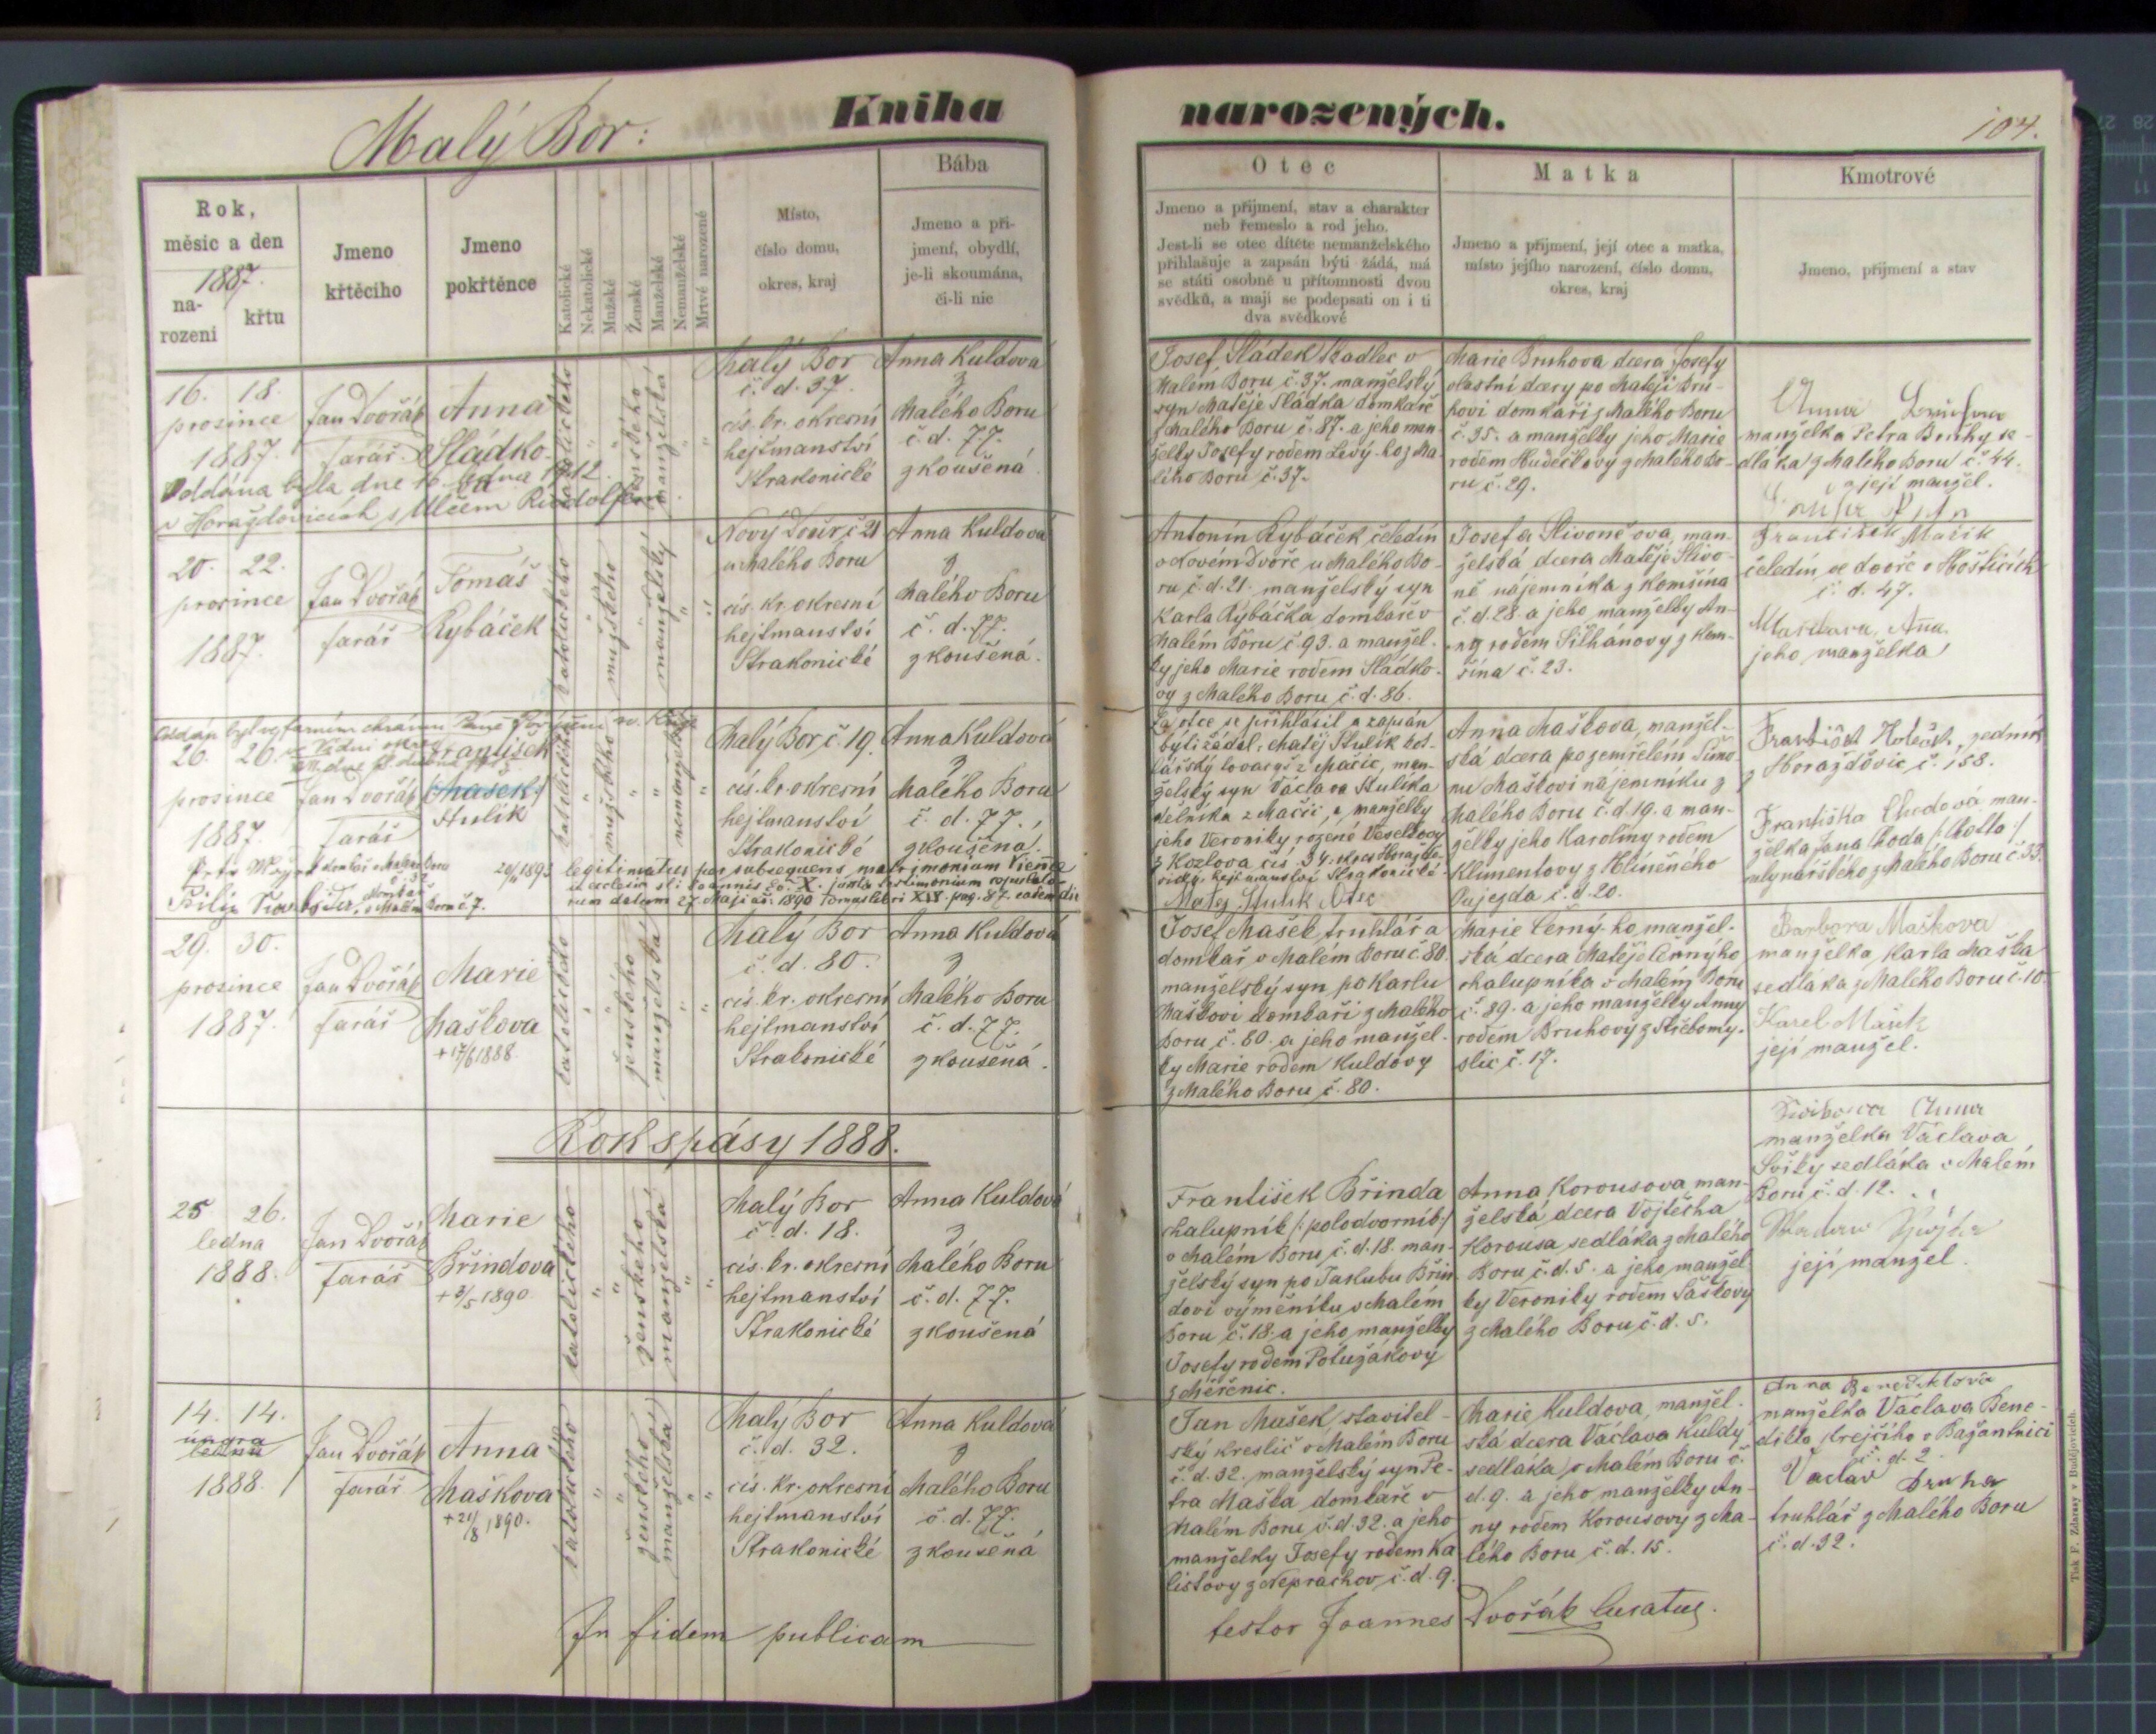 Malý Bor:
Kniha
narozených.
104.
Rok,
měsíc a den
1887.
na-
rození
křtu
Jmeno
křtěcího
Jmeno
pokřtěnce
Katolické
Nekatolické
Mužské
Ženské
Manželské
Nemanželské
Mrtvě narozené
Místo,
číslo domu,
okres, kraj
Bába
Jmeno a při-
jmení, obydlí,
je-li skoumána,
či-li nic
Otec
Jmeno a přijmení, stav a charakter
neb řemeslo a rod jeho.
Jest-li se otec dítěte nemanželského
přihlašuje a zapsán býti žádá, má
se státi osobně u přítomnosti dvou
svědků, a mají se podepsati on i ti
dva svědkové
Matka
Jmeno a přijmení, její otec a matka,
místo jejího narození, číslo domu,
okres, kraj
Kmotrové
Jmeno, přijmení a stav
16. 18.
prosince
1887.
Jan Dvořák
farář
Anna
Sládko-
Oddána byla dne 16. 1912
v Horažďovicích s Rudolfem
katolického
ženského
manželská
Malý Bor
č. d. 37.
cís. kr. okresní
hejtmanství
Strakonické
Anna Kuldová
z
Malého Boru
č. d. 77.
zkoušená
Josef Sládek sladlec v
Malém Boru č. 37. manželský
syn Matěje Sládka domkáře
z Malého Boru č. 87. a jeho man-
želky Josefy rodem Levý-ho z Ma-
lého Boru č. 37.
Marie Bruhova dcera Josefy
vlastní dcery po Matěji Bru-
hovi domkáři z Malého Boru
č. 35. a manželky jeho Marie
rodem Hudečkovy z Malého Bo-
ru č. 29.
Anna
manželka Petra Bruhy se-
dláka z Malého Boru č. 44.
a její manžel.
20. 22.
prosince
1887.
Jan Dvořák
farář
Tomáš
Rybáček
katolického
mužského
manželský
Nový Dvůr č. 21
u Malého Boru
cís. kr. okresní
hejtmanství
Strakonické
Anna Kuldová
z
Malého Boru
č. d. 77.
zkoušená.
Antonín Rybáček čeledín
v Novém Dvoře u Malého Bo-
ru č. d. 21. manželský syn
Karla Rybáčka domkáře v
Malém Boru č. 93. a manžel-
ky jeho Marie rodem Sládko-
vy z Malého Boru č. d. 86.
Josefa Slivoněova, man-
želská dcera Matěje Slivo-
ně nájemníka z Komšína
č. d. 28. a jeho manželky An-
ny rodem Silhánovy z Kom-
šína č. 23.
František Mašík
čeledín ve dvoře v Hošticích
č. d. 47.
jeho manželka
26. 26.
prosince
1887.
Jan Dvořák
farář
František
(Mašek)
Stulík
katolického
mužského
nemanželský
Malý Bor č. 19.
cís. kr. okresní
hejtmanství
Strakonické
Anna Kuldová
z
Malého Boru
č. d. 77.,
zkoušená.
20/11 1893 legitimatus per subsequens matrimonium Viennae
in ecclesia sti Joannis juxta testimonium
datum 27 Maji ai. 1890 Tomus libri XIX. pag. 87.
Za otce se přihlásil a zapsán
býti žádal, Matěj Stulík kot-
lářský tovaryš z Mačic, man-
želský syn Václava Stulíka
dělníka z Mačic, a manželky
jeho Veroniky rozené Veselkovy
z Kozlova čís. 34. okres Horažďo-
vický, hejtmanství Strakonické.
Matěj Stulík Otec
Anna Maškova, manžel-
ská dcera po zemřelém Šimo-
nu Maškovi nájemníku z
Malého Boru č. d. 19. a man-
želky jeho Karoliny rodem
Klimentovy z Hliněného
Oujezda č. d. 20.
František Holeček, zedník
z Horažďovic č. 158.
Františka Chodová man-
želka Jana Choda
mlynářského z Malého Boru č. 33.
29. 30.
prosince
1887.
Jan Dvořák
farář
Marie
Maškova
+ 17/6 1888.
katolického
ženského
manželská
Malý Bor
č. d. 80.
cís. kr. okresní
hejtmanství
Strakonické
Anna Kuldová
z
Malého Boru
č. d. 77.
zkoušená.
Josef Mašek truhlář a
domkář v Malém Boru č. 80.
manželský syn po Karlu
Maškovi domkáři z Malého
Boru č. 80. a jeho manžel-
ky Marie rodem Kuldovy
z Malého Boru č. 80.
Marie Černý-ho, manžel-
ská dcera Matěje Černýho
chalupníka v Malém Boru
č. 89. a jeho manželky Anny
rodem Bruhovy z Střebomy-
slic č. 17.
Barbora Maškova
manželka Karla Maška
sedláka z Malého Boru č. 10.
Karel Mašek
její manžel.
Rok spásy 1888.
25 26.
ledna
1888.
Jan Dvořák
farář
Marie
Břindova
+ 3/5 1890
katolického
ženského
manželská
Malý Bor
č. d. 18.
cís. kr. okresní
hejtmanství
Strakonické
Anna Kuldová
z
Malého Boru
č. d. 77.
zkoušená
František Břinda
chalupník /: polodvorník :/
v Malém Boru č. d. 18. man-
želský syn po Jakubu Břin-
dovi výměníku v Malém
Boru č. 18. a jeho manželky
Josefy rodem Potužákovy
z Měřenic.
Anna Korousova, man-
želská dcera Vojtěcha
Korousa sedláka z Malého
Boru č. d. 5. a jeho manžel-
ky Veroniky rodem Šaškovy
z Malého Boru č. d. 5.
Anna
manželka Václava
sedláka v Malém
Boru č. d. 12.
její manžel.
14. 14.
února
ledna
1888.
Jan Dvořák
farář
Anna
Maškova
+ 21/8 1890.
katolického
ženského
manželská
Malý Bor
č. d. 32.
cís. kr. okresní
hejtmanství
Strakonické
Anna Kuldová
z
Malého Boru
č. d. 77.
zkoušená
Jan Mašek, stavitel-
ský kreslič v Malém Boru
č. d. 32. manželský syn Pe-
tra Maška domkáře v
Malém Boru č. d. 32. a jeho
manželky Josefy rodem Ka-
listovy z Neprachov č. d. 9.
Marie Kuldova, manžel-
ská dcera Václava Kuldy
sedláka v Malém Boru č.
d. 9. a jeho manželky An-
ny rodem Korousovy z Ma-
lého Boru č. d. 15.
Anna Benediktova
manželka Václava Bene-
dikta krejčího v Bažantnici
č. d. 2.
Vaclav Bruha
truhlář z Malého Boru
č. d. 32.
In fidem publicam
testor Joannes Dvořák Curatus.
Tisk F. Zdarssy v Budějovicích.